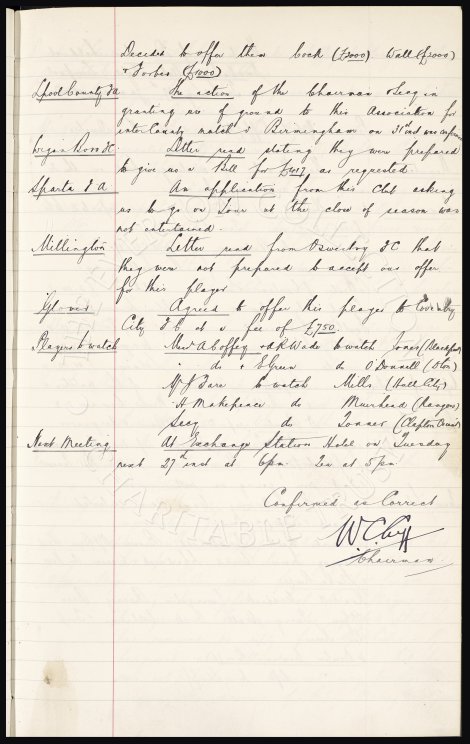 Decided to offer them Cock (£2000) Wall (£2000)
& Forbes (£1000)
Lpool County F A The action of the Chairman & Secy in
granting use of ground to this Association for
inter County match v Birmingham on 31st inst was confirmed
Wigan Boro FC Letter read stating they were prepared
to give us a Bill for £417 as requested.
Sparta F A An application from this Club asking
us to go on Tour at the close of season was
not entertained.
Millington Letter read from Oswestry F C that
they were not prepared to accept our offer
for this player
Glover Agreed to offer this player to Coventry
City F C at a fee of £750.
Players to watch Messrs A Coffey & A R Wade to watch Jones (Blackpool)
do & E Green do O'Donnell (Ston)
W J Sare to watch Mills (Hull City)
H Makepeace do Muirhead (Rangers)
Secy do Tonner (Clapton Orient)
Next Meeting At Exchange Station Hotel on Tuesday
next 27th inst at 6pm. Tea at 5pm
Confirmed as Correct
W. C. Cuff
Chairman.
CHARITABLE